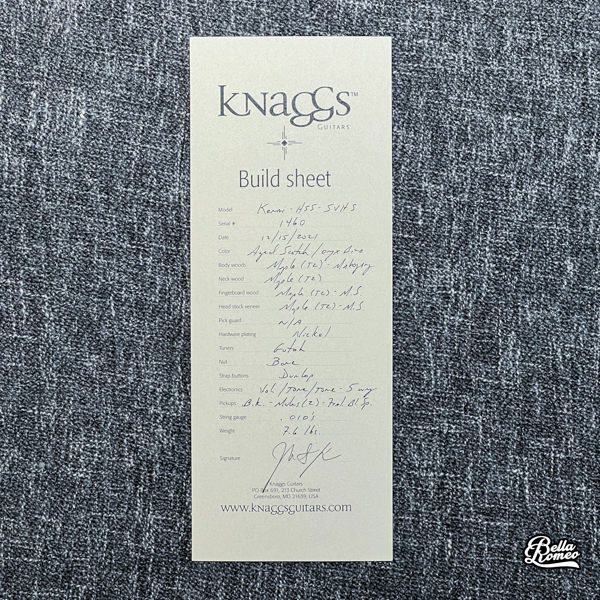 KNAGGS™
GUITARS
Build sheet
Model Kenai - HSS - SVHS
Serial # 1460
Date 12/15/2021
Color Aged Scotch / Onyx
Body woods Maple (T2) - Mahogany
Neck wood Maple (T2)
Fingerboard wood Maple (T2) - M.S
Head stock veneer Maple (T2) - M.S
Pick guard N/A
Hardware plating Nickel
Tuners Gotoh
Nut Bone
Strap buttons Dunlop
Electronics Vol/Tone/Tone - 5 way
Pickups B.K. - Mules (2)
String gauge .010's
Weight 7.6 lbs.
Signature
Knaggs Guitars
PO Box 691, 213 Church Street
Greensboro, MD 21639, USA
www.KNAGGSGUITARS.com
Bella
Romeo